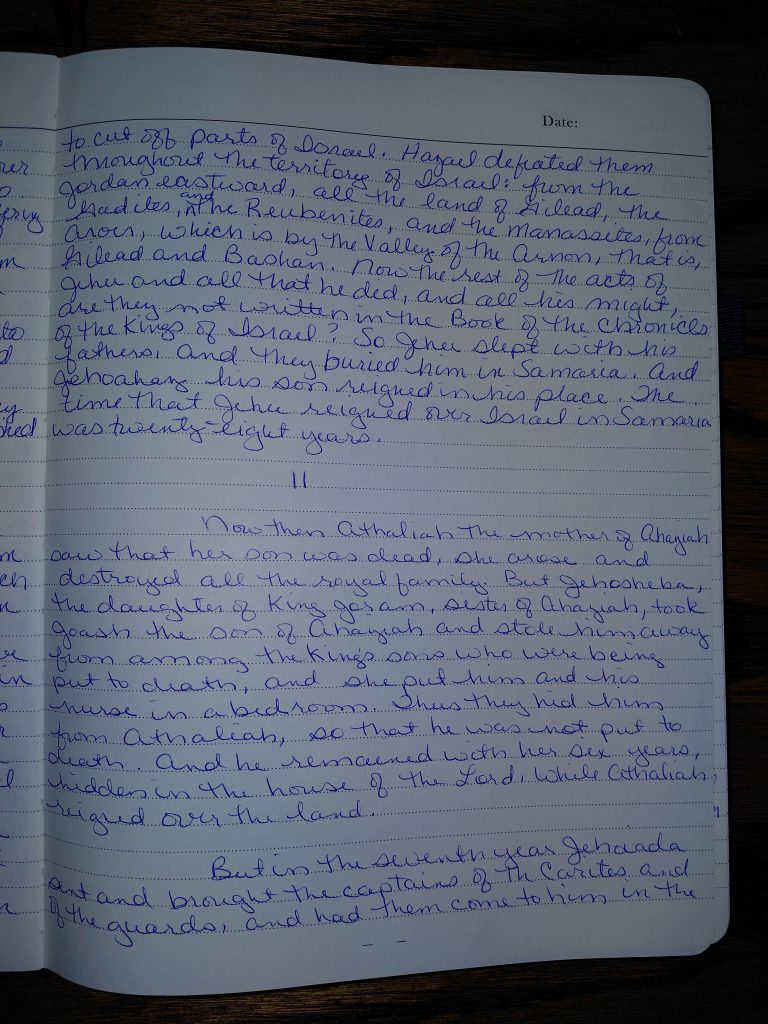 Date:
to cut off parts of Israel. Hazael defeated them
throughout the territory of Israel: from the
Jordan eastward, all the land of Gilead, the
Gadites, and the Reubenites, and the Manassites, from
Aroer, which is by the Valley of the Arnon, that is,
Gilead and Bashan. Now the rest of the acts of
Jehu and all that he did, and all his might,
are they not written in the Book of the Chronicls
of the Kings of Israel? So Jehu slept with his
fathers, and they buried him in Samaria. And
Jehoahaz his son reigned in his place. The
time that Jehu reigned over Israel in Samaria
was twenty-eight years.
11
Now then Athaliah the mother of Ahaziah
saw that her son was dead, she arose and
destroyed all the royal family. But Jehosheba,
the daughter of King Joram, sister of Ahaziah, took
Joash the son of Ahaziah and stole him away
from among the King's sons who were being
put to death, and she put him and his
nurse in a bedroom. Thus they hid him
from Athaliah, so that he was not put to
death. And he remained with her six years,
hidden in the house of the Lord, while Athaliah
reigned over the land.
But in the seventh year Jehoiada
sent and brought the captains of th Carites and
of the guards, and had them come to him in the